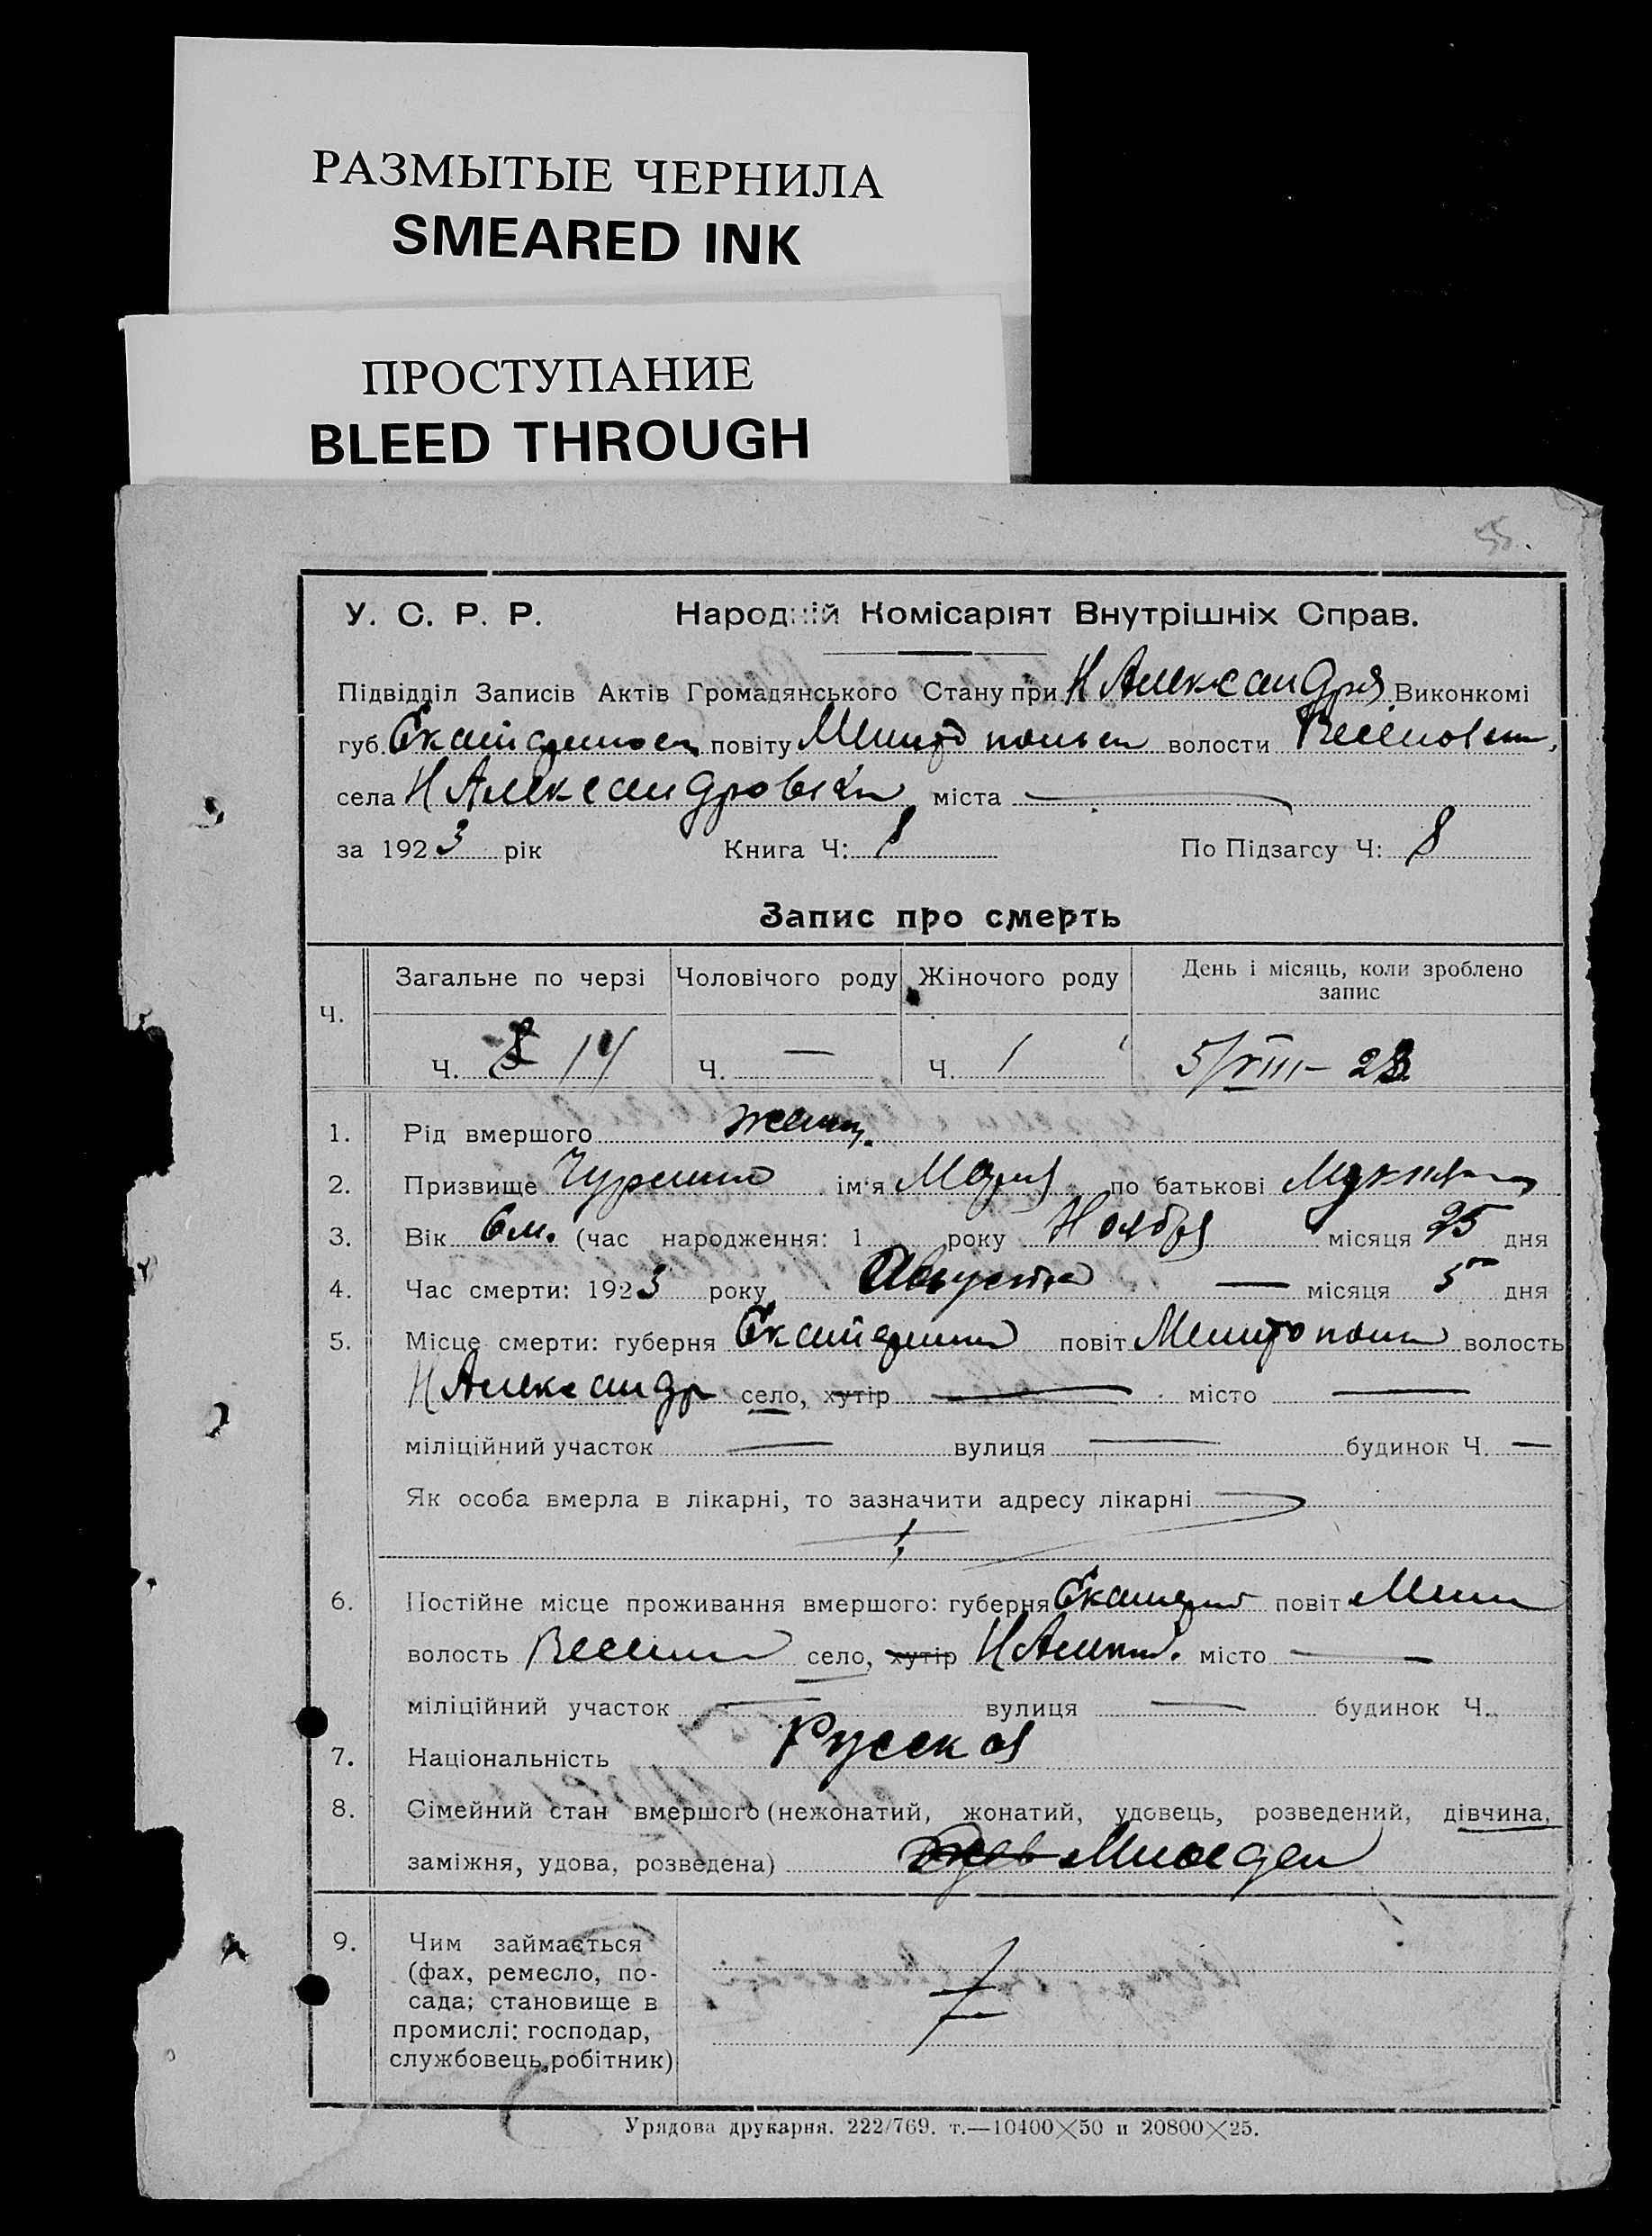 РАЗМЫТЫЕ ЧЕРНИЛА
SMEARED INK
ПРОСТУПАНИЕ
BLEED THROUGH
55.
У. С. Р. Р. Народній Комісаріят Внутрішніх Справ.
Підвідділ Записів Актів Громадянського Стану при Н Александр Виконкомі
губ. повіту волости
села Н Александровки міста —
за 1923 рік Книга Ч: 1 По Підзагсу Ч: 8
Запис про смерть
Ч. Загальне по черзі Чоловічого роду Жіночого роду День і місяць, коли зроблено
запис
Ч. 14 Ч. — Ч. 1 5/VIII – 23
1. Рід вмершого женщ.
2. Призвище ім'я Мария по батькові
3. Вік 6 м. (час народження: 1 року Ноября місяця 25 дня
4. Час смерти: 1923 року Августа — місяця 5 дня
5. Місце смерти: губерня повіт волость
Н Александр село, хутір — місто —
міліційний участок — вулиця — будинок Ч. —
Як особа вмерла в лікарні, то зазначити адресу лікарні
6. Постійне місце проживання вмершого: губерня повіт
волость село, хутір місто —
міліційний участок — вулиця — будинок Ч.
7. Національність Русская
8. Сімейний стан вмершого (нежонатий, жонатий, удовець, розведений, дівчина,
заміжня, удова, розведена)
9. Чим займається
(фах, ремесло, по-
сада; становище в
промислі: господар,
службовець, робітник)
Урядова друкарня. 222/769. т.—10400×50 и 20800×25.